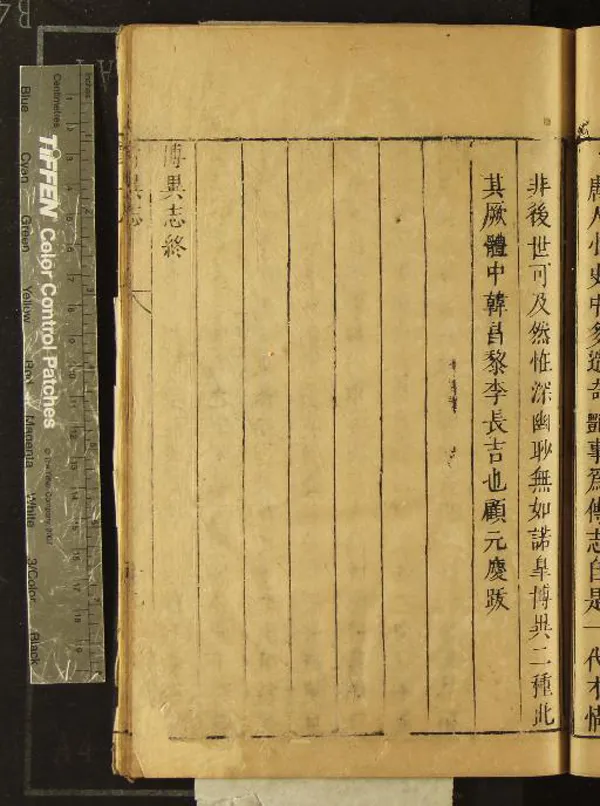 唐人小史中多造奇艷事爲傳志自是一代才情
非後世可及然惟深幽耿無如諾臯博異二種此
其厥體中韓昌黎李長吉也顧元慶跋
博異志終
異志
TIFFEN Color Control Patches
© The Tiffen Company, 2007
Centimetres
Inches
Blue
Cyan
Green
Yellow
Red
Magenta
White
3/Color
Black